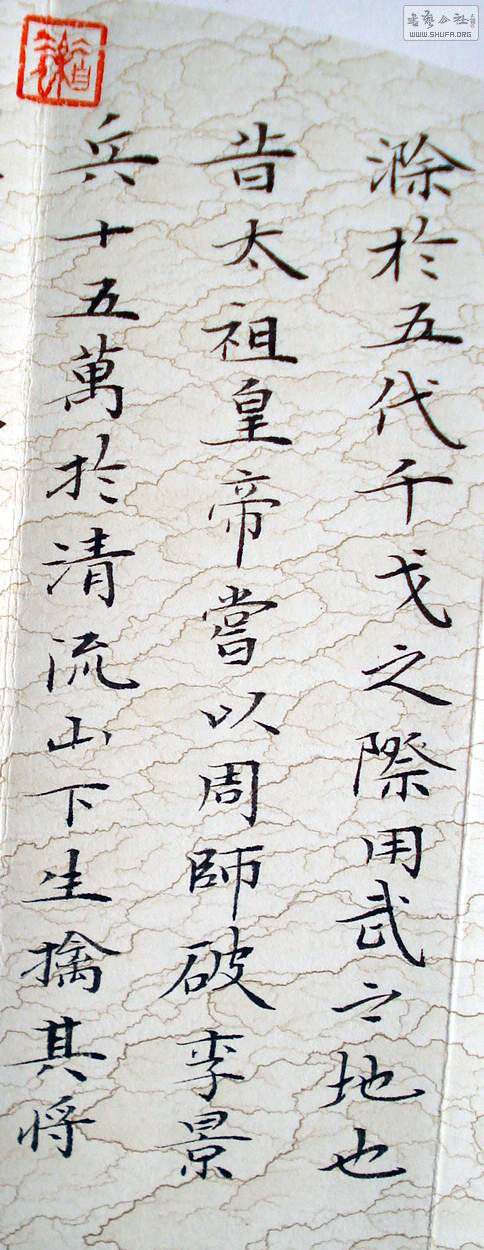 滁於五代干戈之際用武之地也
昔太祖皇帝嘗以周師破李景
兵十五萬於清流山下生擒其将
書藝公社
WWW.SHUFA.ORG